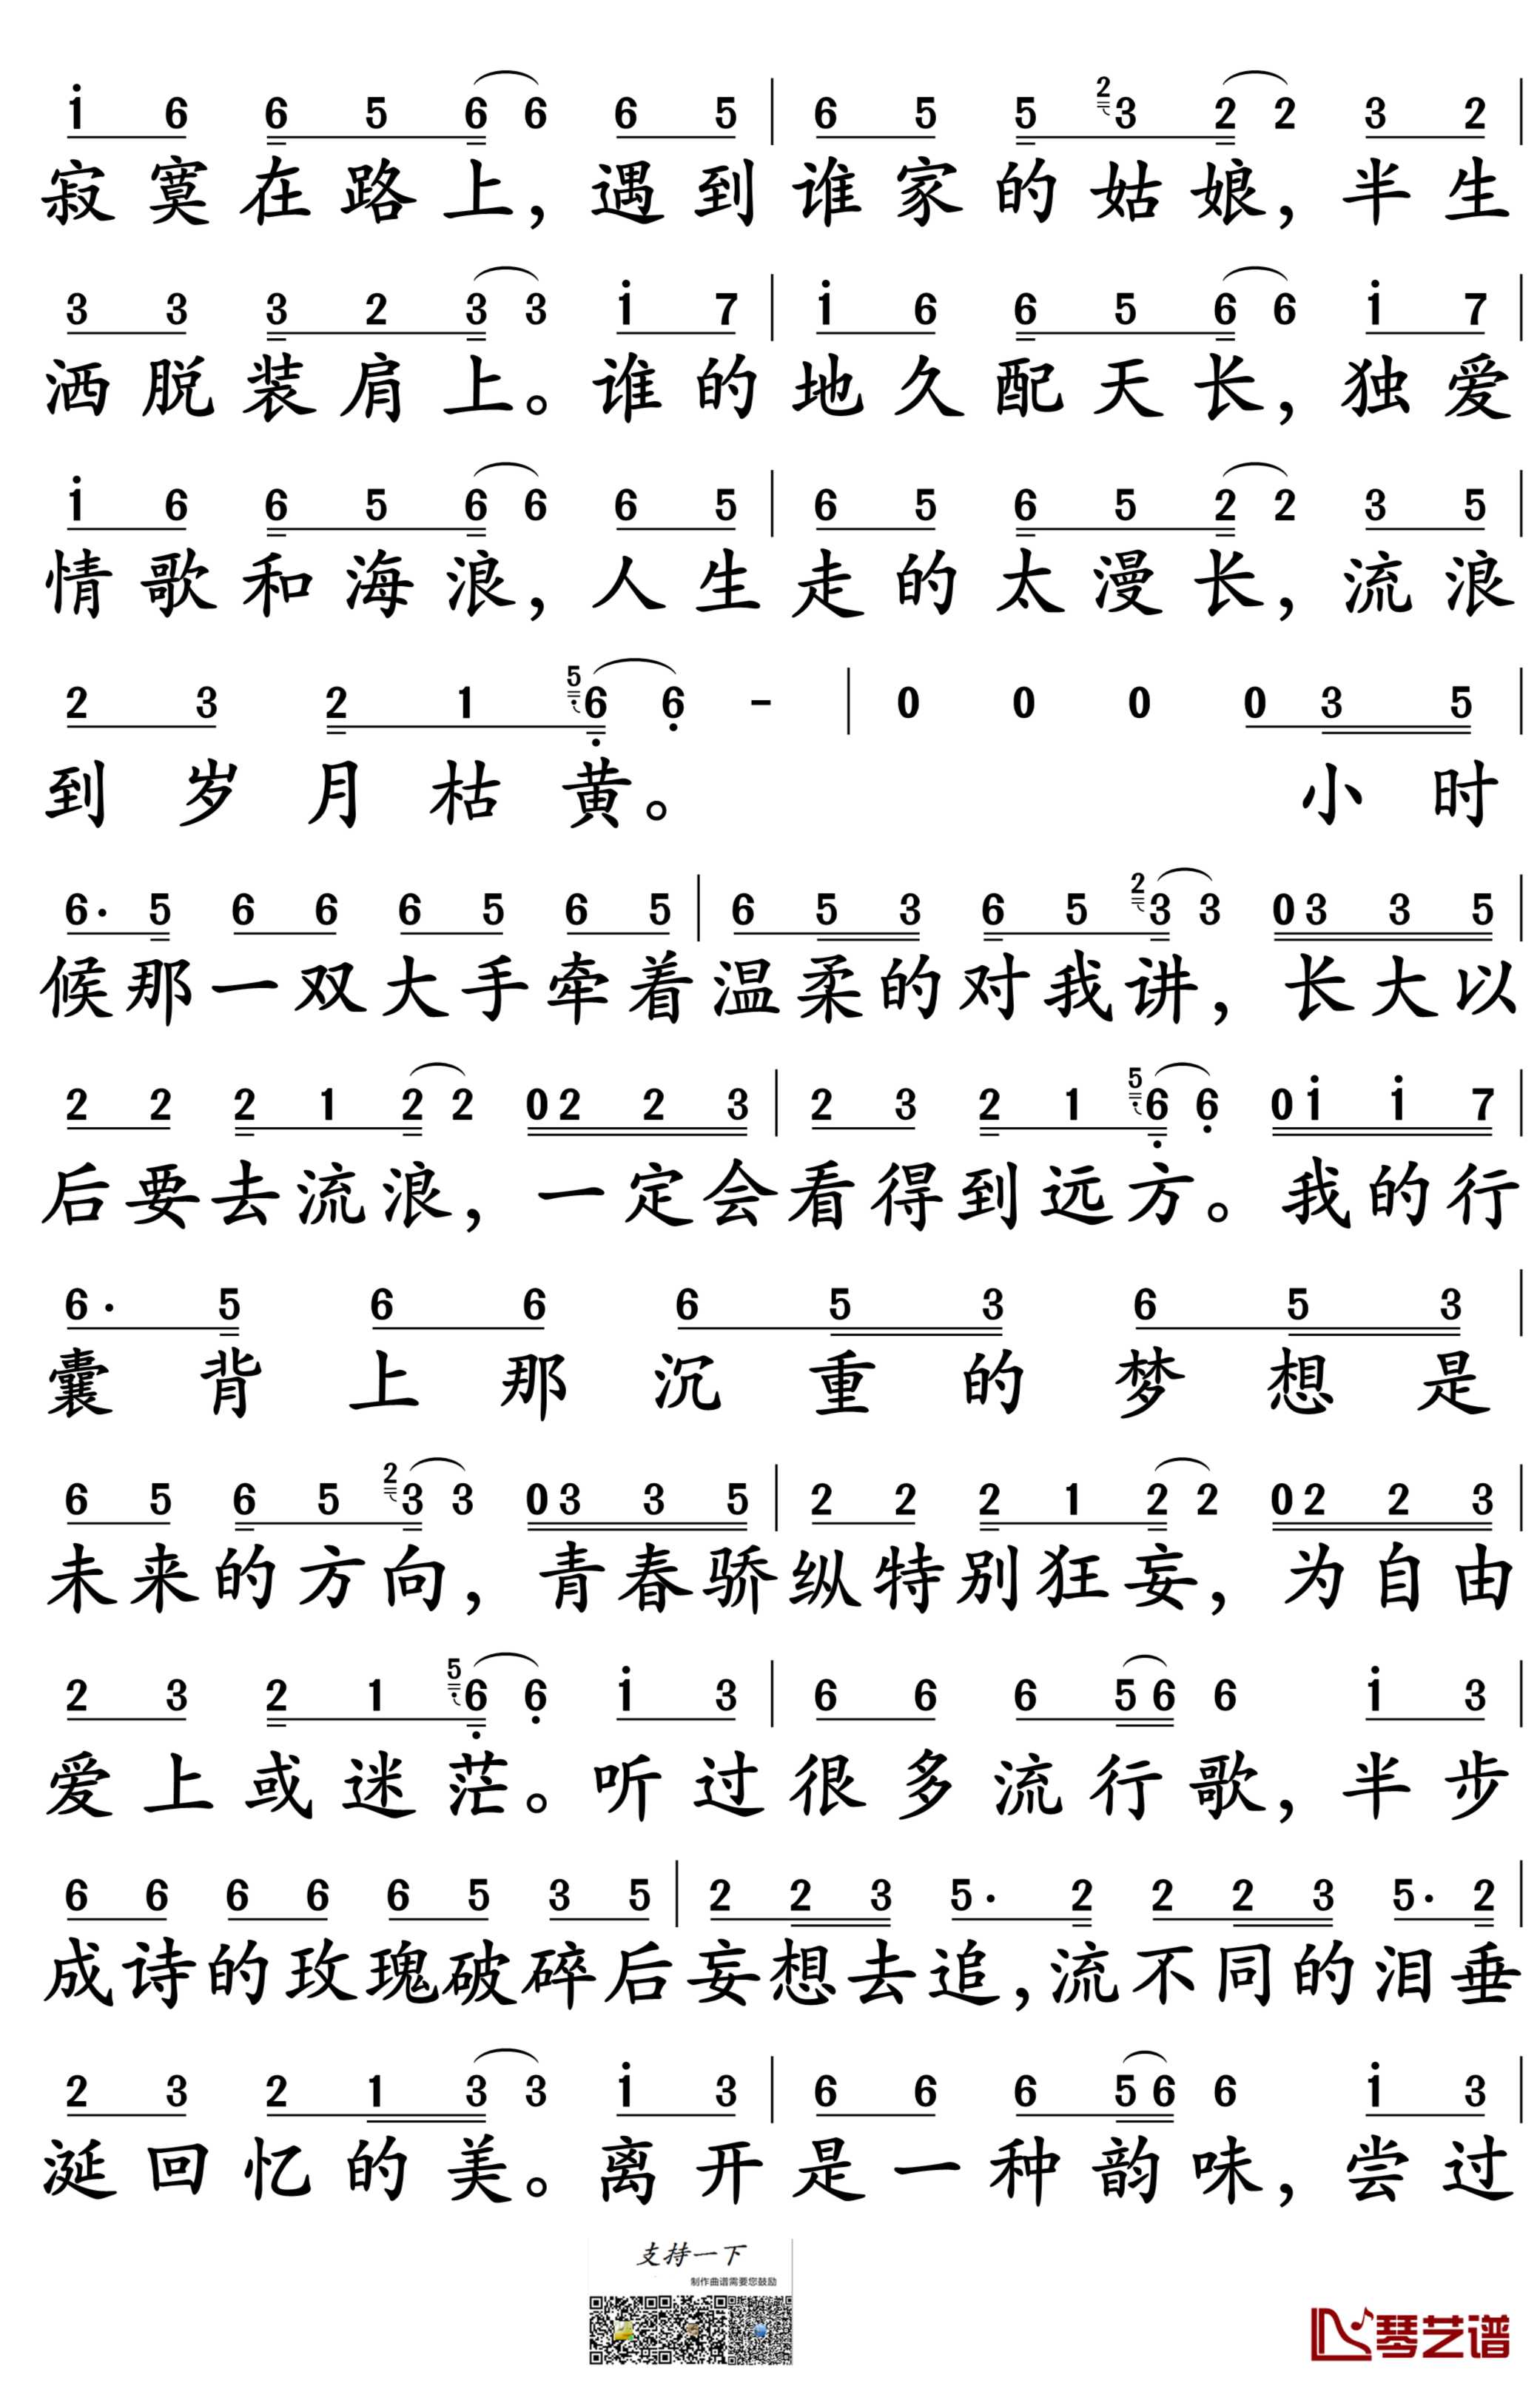 i 6 6 5 6 6 6 5 | 6 5 5 2 3 2 2 3 2 |
寂寞在路上，遇到谁家的姑娘，半生
3 3 3 2 3 3 i 7 | i 6 6 5 6 6 i 7 |
洒脱装肩上。谁的地久配天长，独爱
i 6 6 5 6 6 6 5 | 6 5 6 5 2 2 3 5 |
情歌和海浪，人生走的太漫长，流浪
2 3 2 1 5 6 6 - | 0 0 0 0 3 5 |
到岁月枯黄。 小时
6· 5 6 6 6 5 6 5 | 6 5 3 6 5 2 3 3 0 3 3 5 |
候那一双大手牵着温柔的对我讲，长大以
2 2 2 1 2 2 0 2 2 3 | 2 3 2 1 5 6 6 0 i i 7 |
后要去流浪，一定会看得到远方。我的行
6· 5 6 6 6 5 3 6 5 3 |
囊背上那沉重的梦想是
6 5 6 5 2 3 3 0 3 3 5 | 2 2 2 1 2 2 0 2 2 3 |
未来的方向，青春骄纵特别狂妄，为自由
2 3 2 1 5 6 6 i 3 | 6 6 6 5 6 6 i 3 |
爱上或迷茫。听过很多流行歌，半步
6 6 6 6 6 5 3 5 | 2 2 3 5· 2 2 2 3 5· 2 |
成诗的玫瑰破碎后妄想去追，流不同的泪垂
2 3 2 1 3 3 i 3 | 6 6 6 5 6 6 i 3 |
涎回忆的美。离开是一种韵味，尝过
支持一下
制作曲谱需要您鼓励
琴艺谱